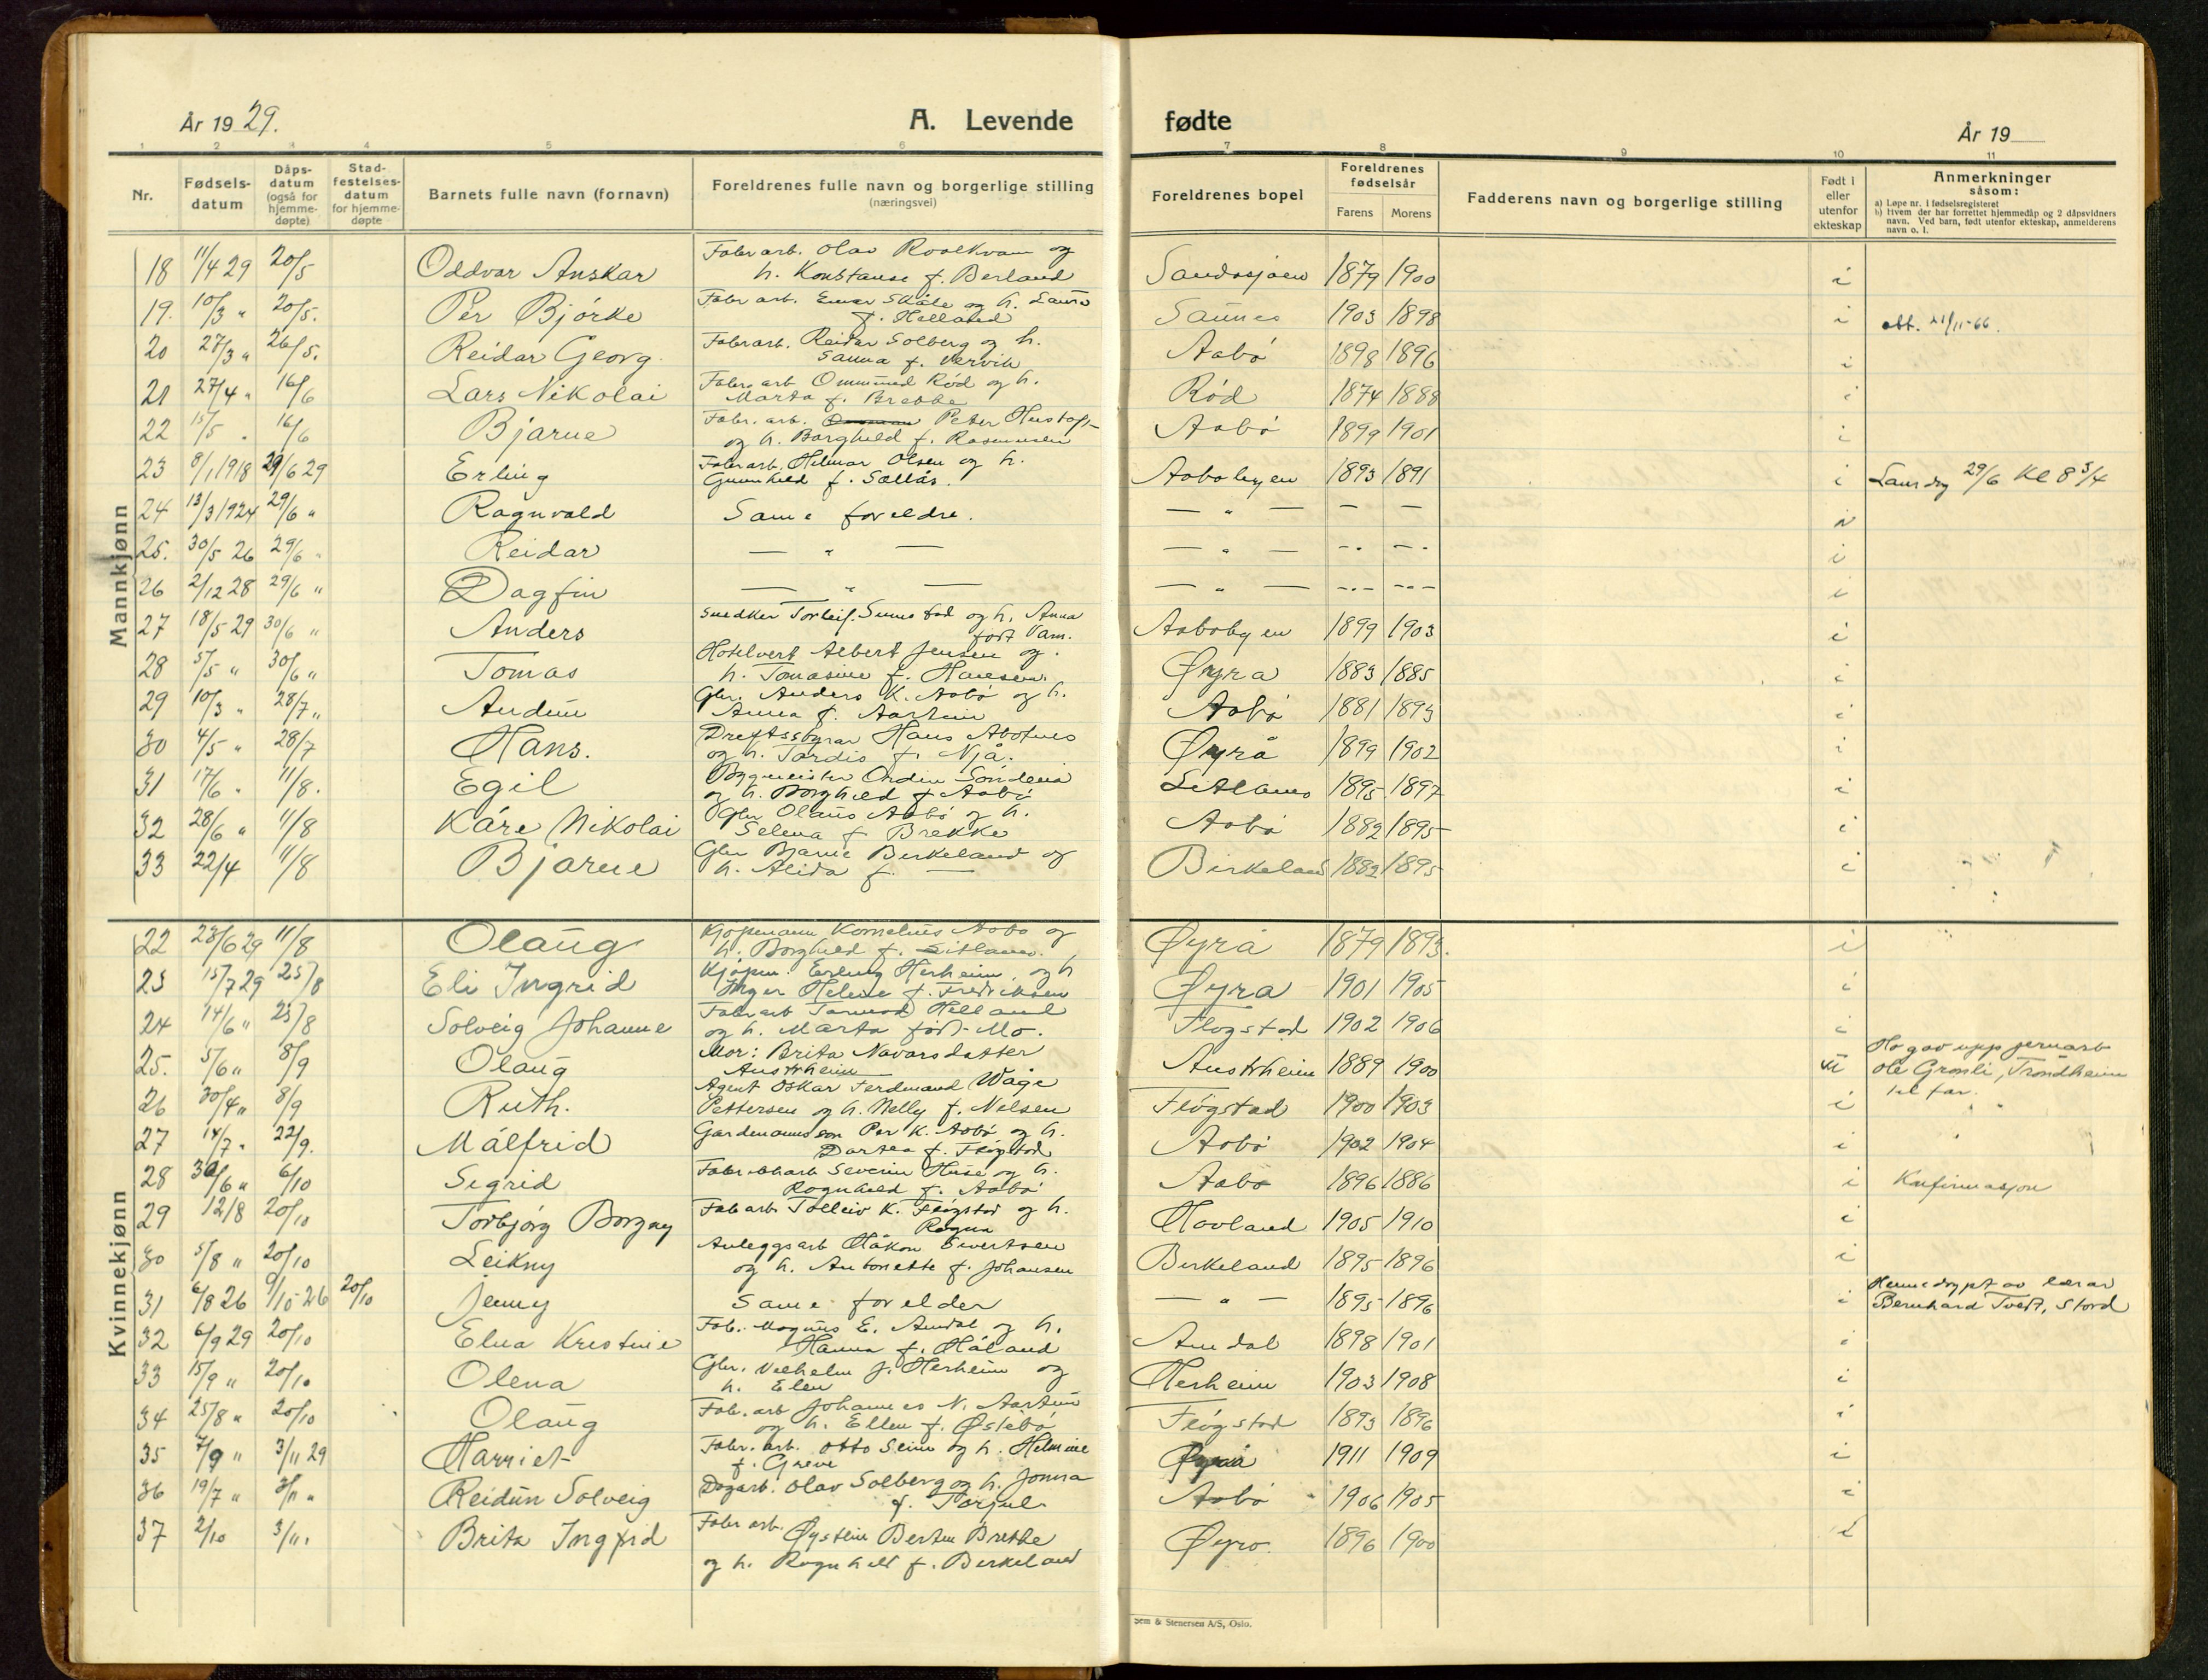 År 1929.
A. Levende fødte
År 19
1 2 3 4 5 6 7 8 9 10 11
Nr.
Fødsels-
datum
Dåps-
datum
(også for
hjemme-
døpte)
Stad-
festelses-
datum
for hjemme-
døpte
Barnets fulle navn (fornavn)
Foreldrenes fulle navn og borgerlige stilling
(næringsvei)
Foreldrenes bopel
Foreldrenes
fødselsår
Farens
Morens
Fadderens navn og borgerlige stilling
Født i
eller
utenfor
ekteskap
Anmerkninger
såsom:
a) Løpe nr. i fødselsregisteret
b) Hvem der har forrettet hjemmedåp og 2 dåpsvidners
navn. Ved barn, født utenfor ekteskap, anmelderens
navn o. l.
Mannkjønn
18 11/4 29 20/5 Oddvar Anskar Fabr arb. Olav Roalkvam og
h. Konstanse f. Berland Sandssjøen 1879 1900 i
19. 10/3 " 20/5. Per Bjørke Fabr arb. Einar Skåle og h. Laura
f. Helland Saunes 1903 1898 i att. 21/11-66.
20 27/3 " 26/5. Reidar Georg. Fabr arb. Reidar Solberg og h.
Sanna f. Nervik Aabø 1898 1896 i
21 27/4 " 16/6 Lars Nikolai Fabr. arb Ommund Rød og h.
Marta f. Brekke Rød 1874 1888 i
22 15/5 " 16/6 Bjarne Fabr. arb. Peter
og h. Borghild f. Rasmussen Aabø 1899 1901 i
23 8/1 1918 29/6 29 Erling Fabr arb. Hilmar Olsen og h.
Gunnhild f. Sællås. Aabøbyen 1893 1891 i Laurdag 29/6 Kl 8 3/4
24 13/3 1924 29/6 " Ragnvald Same foreldre. — " — — — i
25. 30/5 26 29/6 " Reidar — " — — " — -- -- i
26 2/12 28 29/6 " Dagfin — " — — " — --- --- i
27 18/5 29 30/6 " Anders Snedker Torleif Sunnstad og h. Anna
født Vam. Aabøbyen 1899 1903 i
28 5/5 " 30/6 " Tomas Hotelvert Albert Jensen og
h. Tomasine f. Hansen. Øyra 1883 1885 i
29 10/3 " 28/7 " Audun Gbr. Anders K. Aabø og h.
Anna f. Aartun Aabø 1881 1893 i
30 4/5 " 28/7 Hans. Driftsstyrar Hans Abotnes
og h. Tordis f. Njå. Øyrå 1899 1902 i
31 17/6 " 11/8. Egil Byggmeister Ordin Søndenå
og h. Borghild f. Aabø Litlamo 1895 1897 i
32 28/6 " 11/8 Kåre Nikolai Gbr Olaus Aabø og h.
Selena f. Brekke Aabø 1882 1895 i
33 22/4 11/8 Bjarne Gbr Bjarne Birkeland og
h. Alida f. — Birkeland 1882 1895 i
Kvinnekjønn
22 23/6 29 11/8 Olaug Kjøpmann Kornelius Aabø og
h. Borghild f. Litlamo. Øyrå 1879 1893. i
23 15/7 29 25/8 Eli Ingrid Kjøpm. Erling Herheim, og h
Inger Helene f. Fredriksen Øyra 1901 1905 i
24 14/6 " 25/8 Solveig Johanne Fabr arb Tormod Helland
og h. Marta født Mo. Fløgstad 1902 1906 i
25. 5/6 " 8/9 Olaug Mor: Brita Navarsdatter
Austrheim Austrheim 1889 1900 u Ho gav upp jernarb
Ole Grønli, Trondheim
til far.
26 30/4 " 8/9 Ruth. Agent Oskar Ferdinand Wåge
Pettersen og h. Nelly f. Nelsen Fløgstad 1900 1903 i
27 14/7 " 22/9. Målfrid Gardmannsson Per K. Aabø og h.
Dortea f. Fløgstad Aabø 1902 1904 i
28 30/6 " 6/10 Sigrid Fabrikkarb Severin Huse og h.
Ragnhild f. Aabø Aabø 1896 1886 i Konfirmasjon
29 12/8 20/10 Torbjørg Borgny Fab arb. Tolleiv K. Fløgstad og h.
Ragna Hovland 1905 1910 i
30 5/8 " 20/10 Leikny Anleggsarb Håkon Sivertsen
og h. Antonette f. Johansen Birkeland 1895 1896 i
31 6/8 26 9/10 26 20/10 Jenny Same forelder — " — 1895 1896 i Heimedøypt av lærar
Bernhard Tveit, Stord
32 6/9 29 20/10 Elna Kristine Fab. Magnus E. Amdal og h.
Hanna f. Håland Amdal 1898 1901 i
33 15/9 " 20/10 Olena Gbr. Vilhelm J. Herheim og
h. Elen Herheim 1903 1908 i
34 25/8 " 20/10 Olaug Fab. arb Johannes N. Aartun
og h. Ellen f. Østebø Fløgstad 1893 1896 i
35 7/9 " 3/11 29 Harriet Fabr. arb. Otto Seim og h. Helmine
f. Greve Øyrå 1911 1909 i
36 19/7 " 3/11 " Reidun Solveig Dagarb. Olav Solberg og h. Jonna
f. Torjul Aabø 1906 1905 i
37 2/10 3/11. Brita Ingfrid Fabr arb. Øystein Berten Brekke
og h. Ragnhild f. Birkeland Øyro. 1896 1900 i
Sem & Stenersen A/S, Oslo.